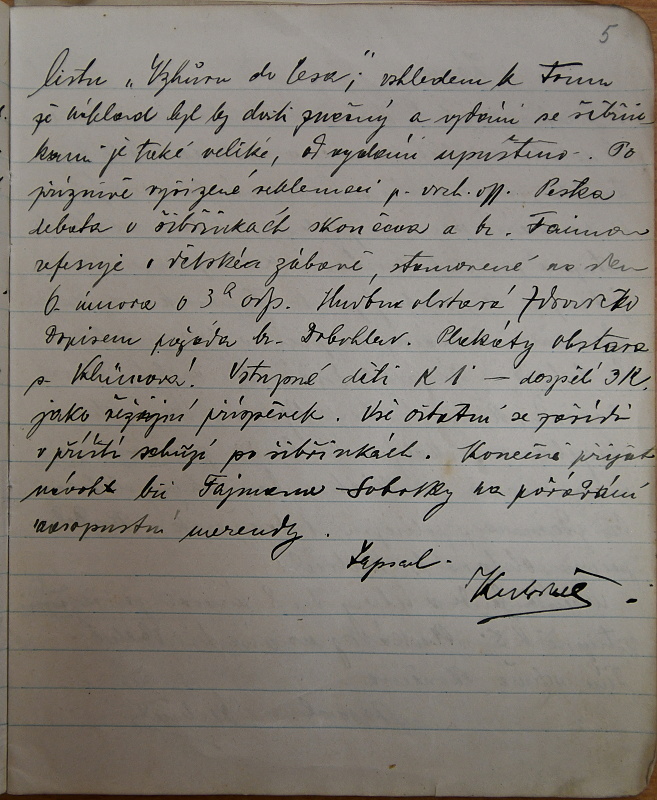 5
listu „Vzhůru do lesa;“ vzhledem k tomu
že náklad byl by dosti značný a vydání se šibřin-
kami je také veliké, od vydání upuštěno. Po
příznivě vyřízené reklamaci p. vrch. off. Peška
debata o šibřinkách skončena a br. Fajman
referuje o dětské zábavě, stanovené na den
6. února o 3ª odp. Hudbu obstará
Dopisem požádá br. Dobohlav. Plakáty obstará
s. Vzhůrová! Vstupné děti K 1 — dospělí 3 K.
jako režijní příspěvek. Vše ostatní se zařídí
v příští schůzi po šibřinkách. Konečně přijat
návrh bří Fajmana Sobotky na pořádání
masopustní merendy.
Zapsal.